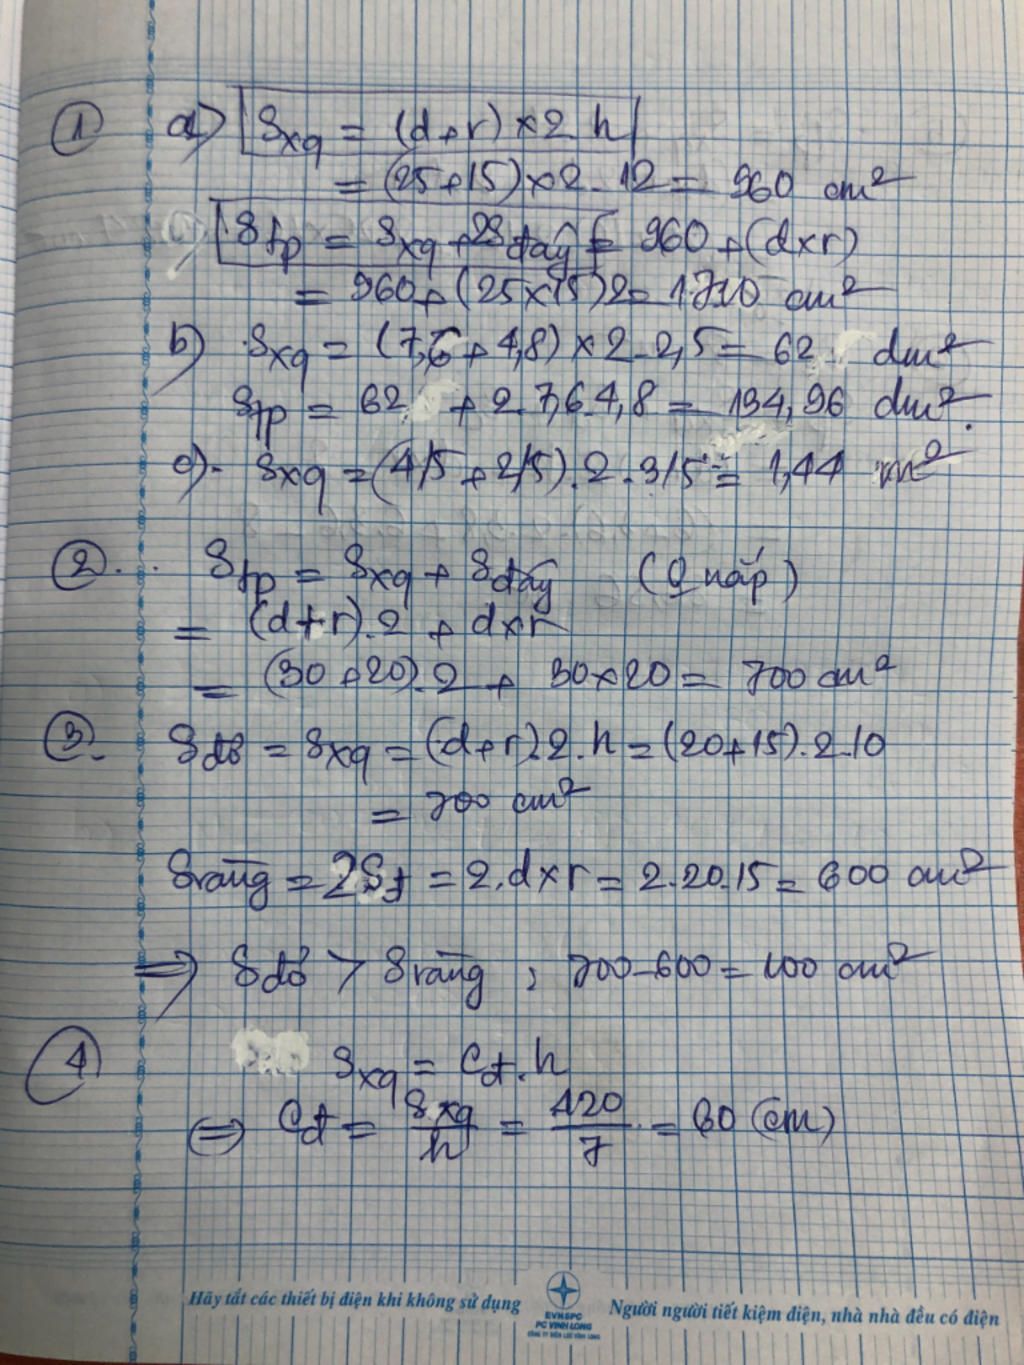 ① a) Sxq = (d+r)×2 h
= (25+15)×2.12 = 960 cm²
Stp = Sxq + 2Sđáy = 960 + (d×r)
= 960 + (25×15)2 = 1710 cm²
b) Sxq = (7,6 + 4,8) × 2.2,5 = 62 dm²
Stp = 62 + 2.7,6.4,8 = 134,96 dm².
c). Sxq = (4/5 + 2/5).2.3/5 = 1,44 m²
②. Stp = Sxq + Sđáy (0 nắp)
= (d+r).2 + d×r
= (30+20).2 + 30×20 = 700 cm²
③. Sđỏ = Sxq = (d+r).2.h = (20+15).2.10
= 700 cm²
Svàng = 2Sđ = 2.d×r = 2.20.15 = 600 cm²
⇒ Sđỏ > Svàng , 700-600 = 100 cm²
④ Sxq = Cđ.h
⇔ Cđ = Sxq/h = 420/7 = 60 (cm)
Hãy tắt các thiết bị điện khi không sử dụng
EVNSPC
PC VINH LONG
CÔNG TY ĐIỆN LỰC VĨNH LONG
Người người tiết kiệm điện, nhà nhà đều có điện